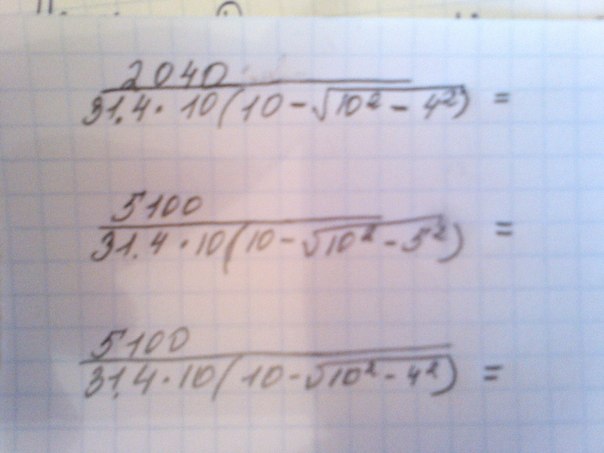 2040
31.4 · 10(10 - √10² - 4²) =
5100
31.4 · 10(10 - √10² - 5²) =
5100
31.4 · 10(10 - √10² - 4²) =